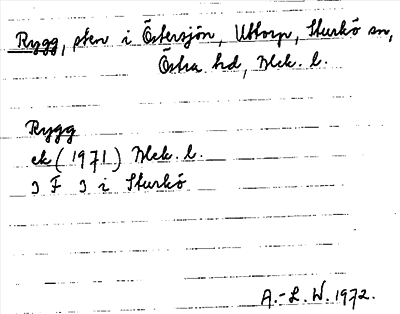 Rygg, sten i Östersjön, Uttorp, Sturkö sn,
Östra hd, Blek. l.
Rygg
ek (1971) Blek. l.
3 F 3 i Sturkö
A.-L. W. 1972.